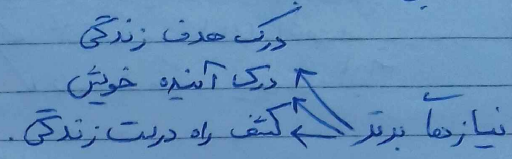 درک هدف زندگی
درک آینده خویش
نیازهای برتر کشف راه درست زندگی.